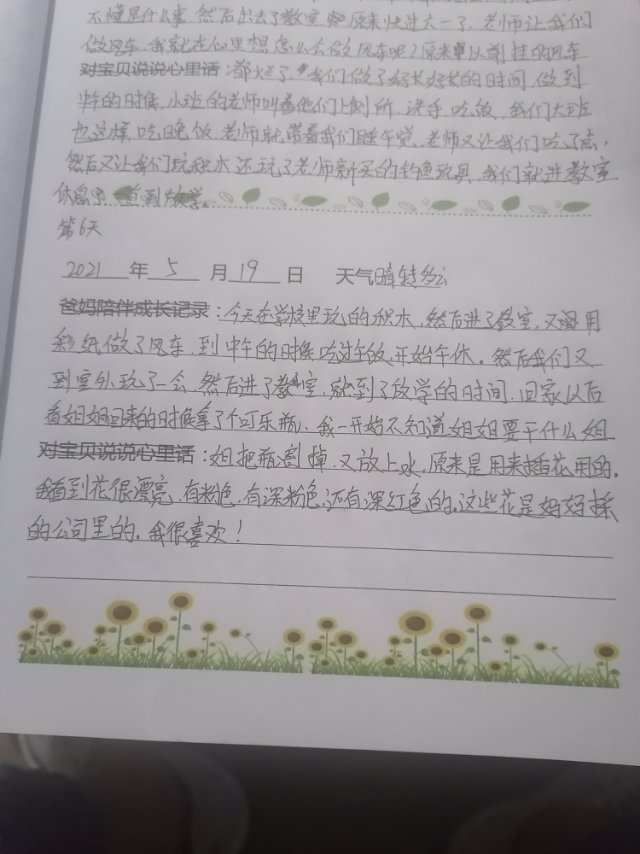 不懂是什么事,然后出去了教室,原来快过六一了,老师让我们
做风车,我就在心里想怎么会做风车呢?原来是挂的风车
对宝贝说说心里话:都烂了,我们做了好长好长的时间,做到
半的时候,小班的老师叫着他们上厕所,洗手,吃饭,我们大班
也这样,吃晚饭,老师就带着我们睡午觉,老师又让我们吃了点,
然后又让我们玩积木还玩了老师新买的钓鱼玩具,我们就进教室
休息,直到放学。
第6天
2021年5月19日 天气晴转多云
爸妈陪伴成长记录:今天在学校里玩的积木,然后进了教室,又用
彩纸做了风车,到中午的时候吃过午饭,开始午休。然后我们又
到室外玩了一会,然后进了教室,就到了放学的时间,回家以后
看姐姐回来的时候拿了个可乐瓶,我一开始不知道姐姐要干什么姐
对宝贝说说心里话:姐把瓶割掉,又放上水,原来是用来插花用的。
我看到花很漂亮,有粉色,有深粉色,还有深红色的,这些花是妈妈摘
的公司里的,我很喜欢!